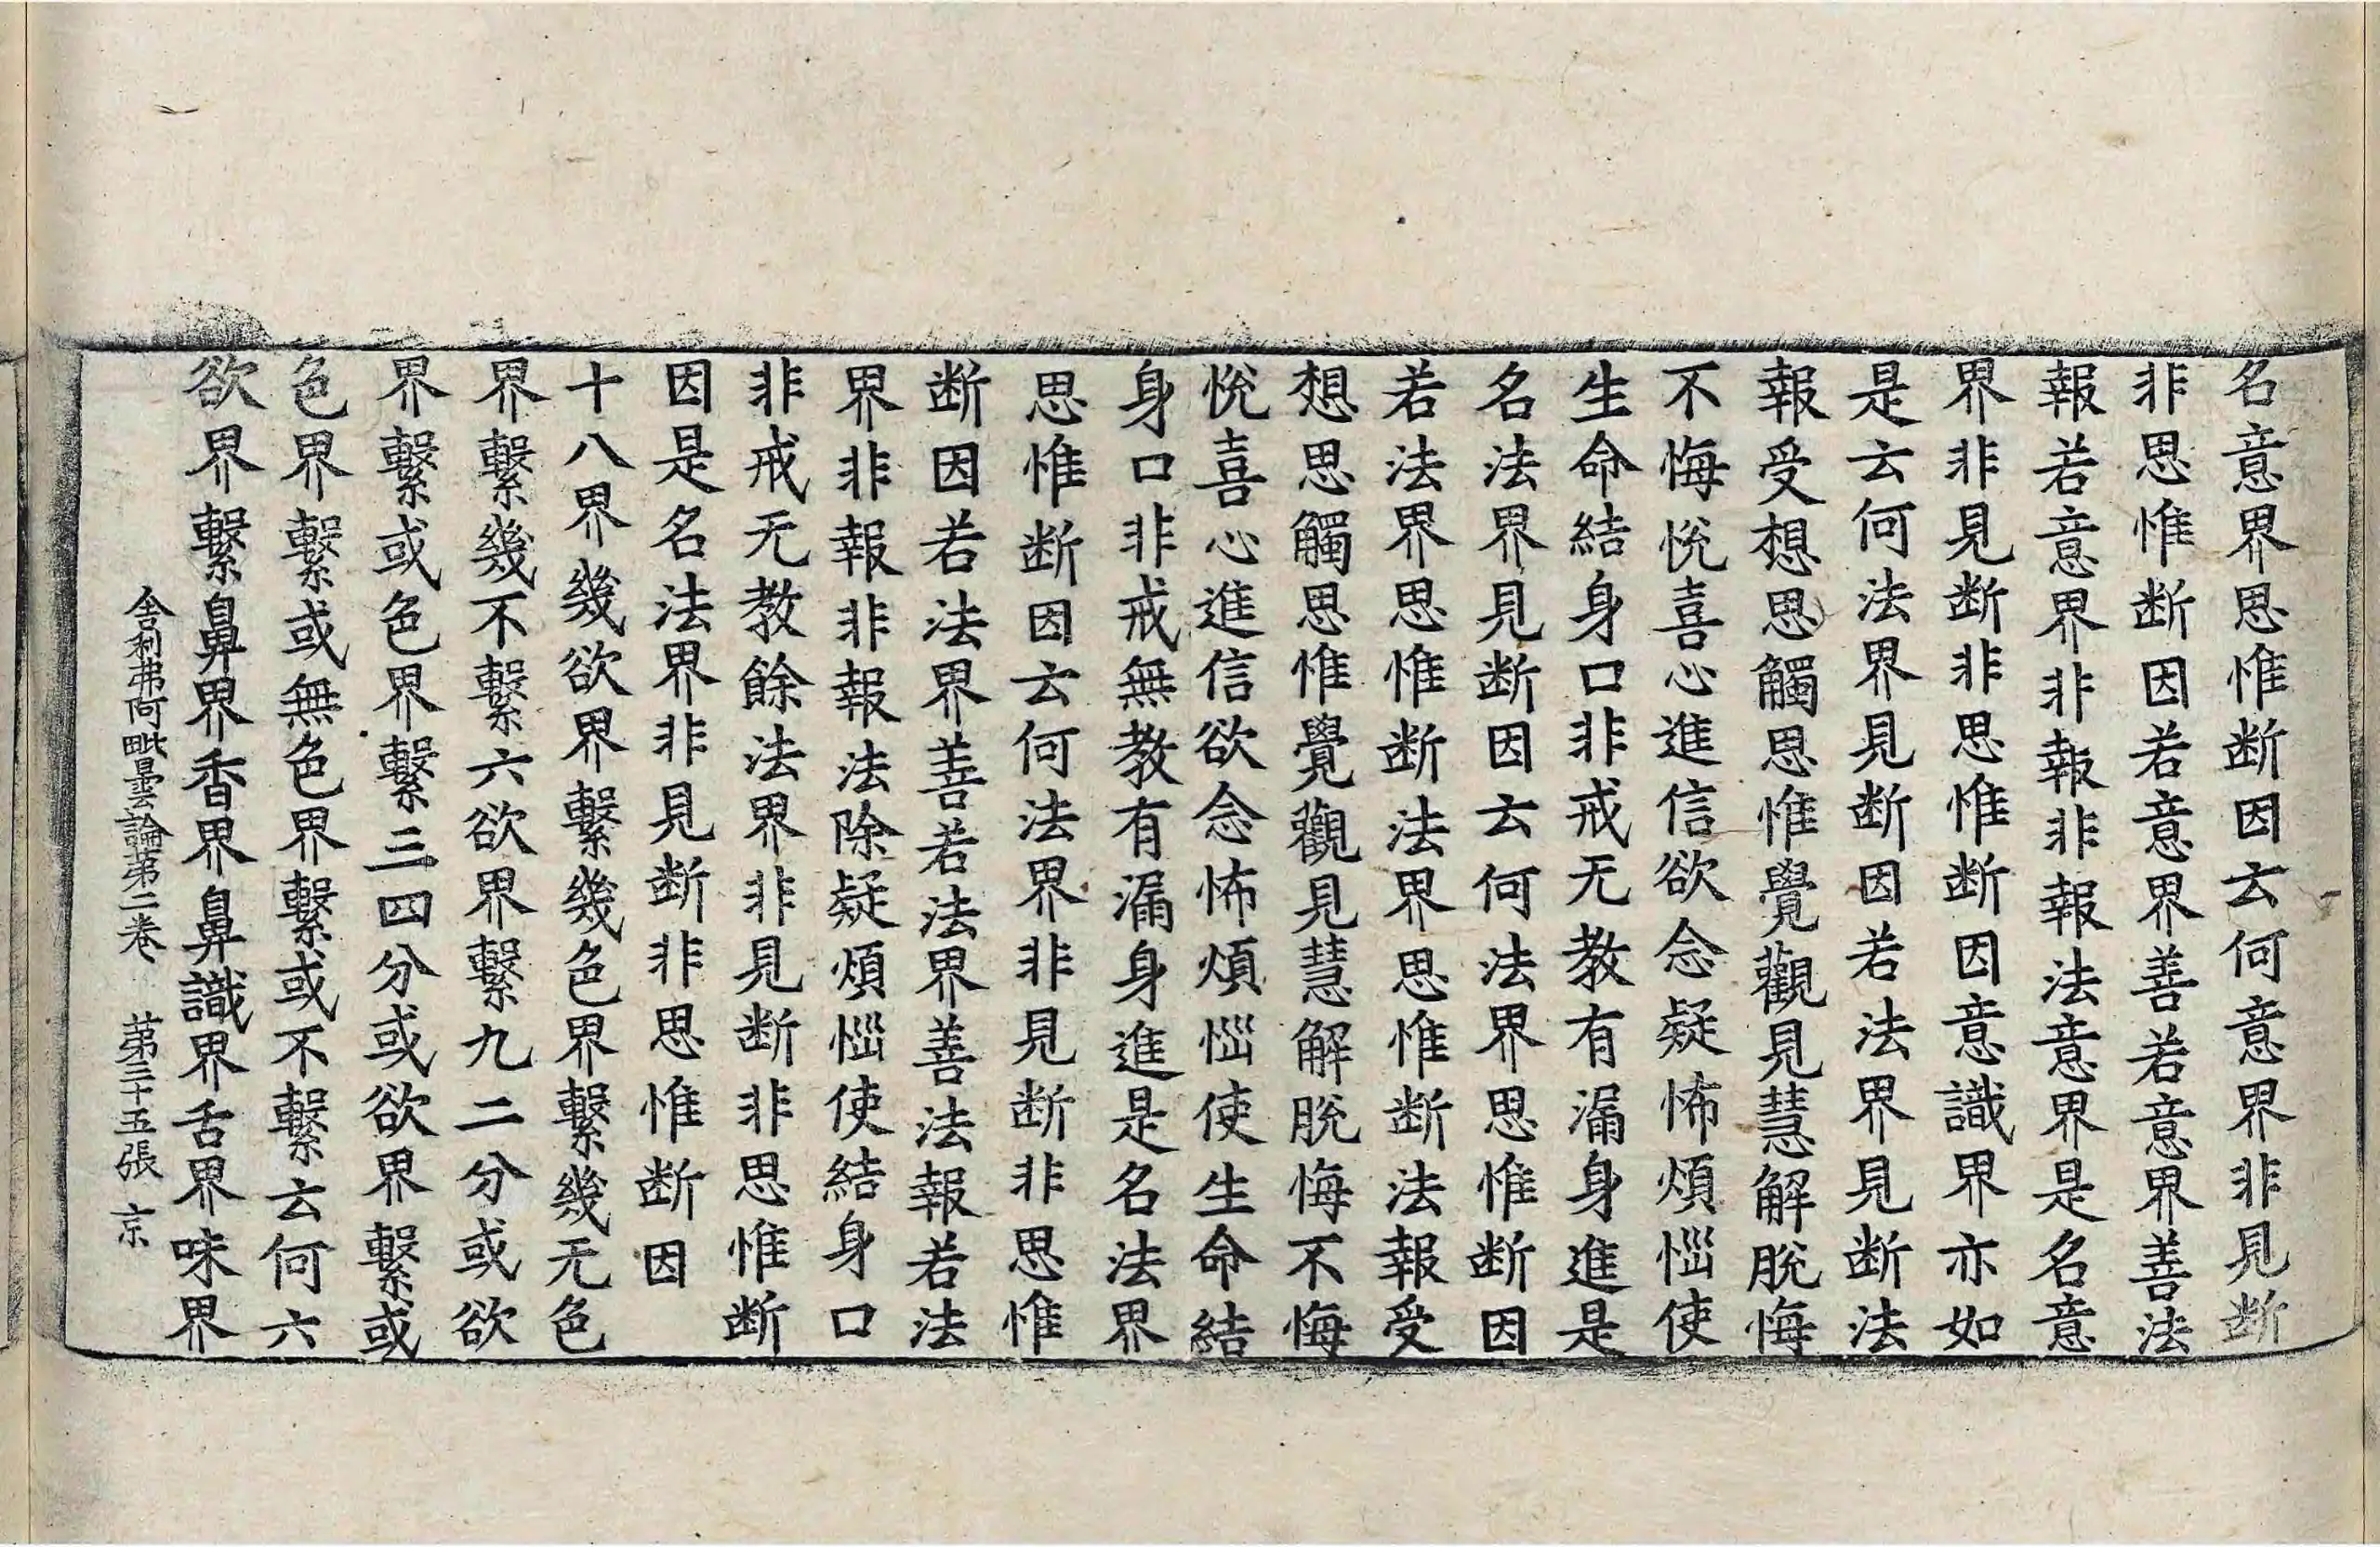 名意界思惟断因云何意界非見断
非思惟断因若意界善若意界善法
報若意界非報非報法意界是名意
界非見断非思惟断因意識界亦如
是云何法界見断因若法界見断法
報受想思觸思惟覺觀見慧解脫悔
不悔悅喜心進信欲念疑怖煩惱使
生命結身口非戒无教有漏身進是
名法界見断因云何法界思惟断因
若法界思惟断法界思惟断法報受
想思觸思惟覺觀見慧解脫悔不悔
悅喜心進信欲念怖煩惱使生命結
身口非戒無教有漏身進是名法界
思惟断因云何法界非見断非思惟
断因若法界善若法界善法報若法
界非報非報法除疑煩惱使結身口
非戒无教餘法界非見断非思惟断
因是名法界非見断非思惟断因
十八界幾欲界繫幾色界繫幾无色
界繫幾不繫六欲界繫九二分或欲
界繫或色界繫三四分或欲界繫或
色界繫或無色界繫或不繫云何六
欲界繫鼻界香界鼻識界舌界味界
舍利弗阿毗曇論第二卷　第三十五張　京